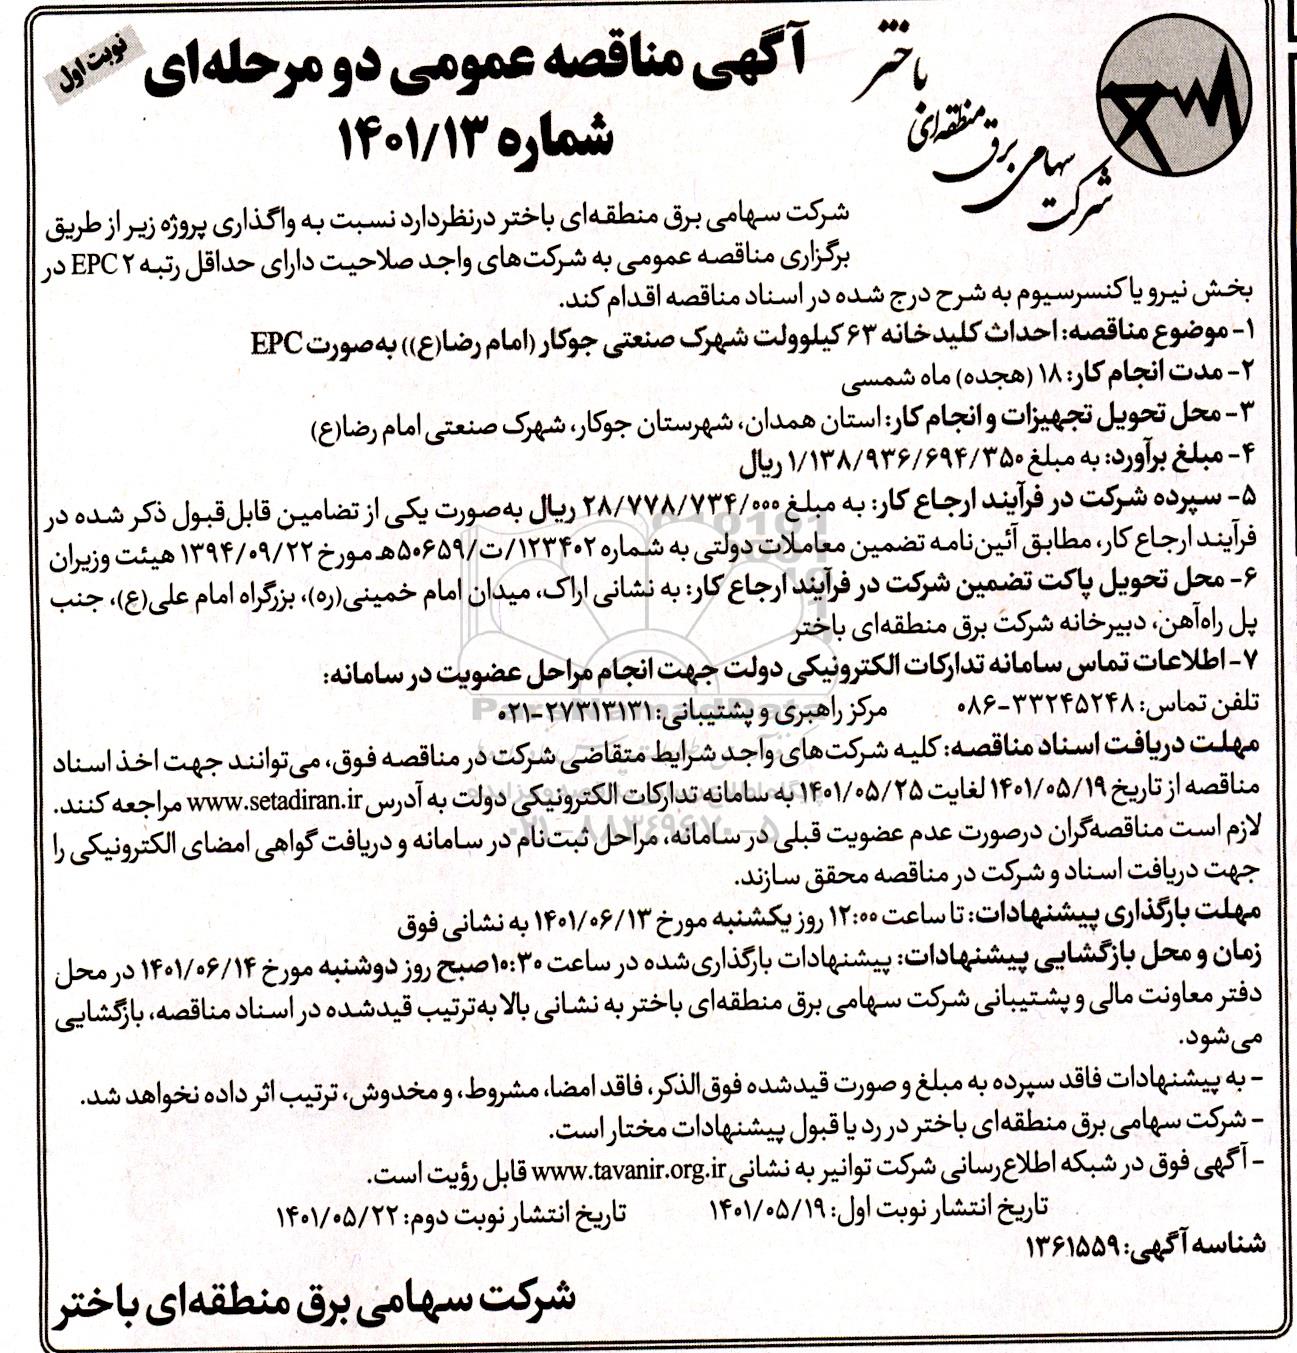 نوبت اول
آگهی مناقصه عمومی دو مرحله‌ای
شماره ۱۴۰۱/۱۳
شرکت سهامی برق منطقه‌ای باختر
شرکت سهامی برق منطقه‌ای باختر درنظردارد نسبت به واگذاری پروژه زیر از طریق
برگزاری مناقصه عمومی به شرکت‌های واجد صلاحیت دارای حداقل رتبه ۲ EPC در
بخش نیرو یا کنسرسیوم به شرح درج شده در اسناد مناقصه اقدام کند.
۱- موضوع مناقصه: احداث کلیدخانه ۶۳ کیلوولت شهرک صنعتی جوکار (امام رضا(ع)) به‌صورت EPC
۲- مدت انجام کار: ۱۸ (هجده) ماه شمسی
۳- محل تحویل تجهیزات و انجام کار: استان همدان، شهرستان جوکار، شهرک صنعتی امام رضا(ع)
۴- مبلغ برآورد: به مبلغ ۱/۱۳۸/۹۳۶/۶۹۴/۳۵۰ ریال
۵- سپرده شرکت در فرآیند ارجاع کار: به مبلغ ۲۸/۷۷۸/۷۳۴/۰۰۰ ریال به‌صورت یکی از تضامین قابل‌قبول ذکر شده در
فرآیند ارجاع کار، مطابق آئین‌نامه تضمین معاملات دولتی به شماره ۱۲۳۴۰۲/ت/۵۰۶۵۹هـ مورخ ۱۳۹۴/۰۹/۲۲ هیئت وزیران
۶- محل تحویل پاکت تضمین شرکت در فرآیند ارجاع کار: به نشانی اراک، میدان امام خمینی(ره)، بزرگراه امام علی(ع)، جنب
پل راه‌آهن، دبیرخانه شرکت برق منطقه‌ای باختر
۷- اطلاعات تماس سامانه تدارکات الکترونیکی دولت جهت انجام مراحل عضویت در سامانه:
تلفن تماس: ۳۳۲۴۵۲۴۸-۰۸۶ مرکز راهبری و پشتیبانی: ۲۷۳۱۳۱۳۱-۰۲۱
مهلت دریافت اسناد مناقصه: کلیه شرکت‌های واجد شرایط متقاضی شرکت در مناقصه فوق، می‌توانند جهت اخذ اسناد
مناقصه از تاریخ ۱۴۰۱/۰۵/۱۹ لغایت ۱۴۰۱/۰۵/۲۵ به سامانه تدارکات الکترونیکی دولت به آدرس www.setadiran.ir مراجعه کنند.
لازم است مناقصه‌گران درصورت عدم عضویت قبلی در سامانه، مراحل ثبت‌نام در سامانه و دریافت گواهی امضای الکترونیکی را
جهت دریافت اسناد و شرکت در مناقصه محقق سازند.
مهلت بارگذاری پیشنهادات: تا ساعت ۱۲:۰۰ روز یکشنبه مورخ ۱۴۰۱/۰۶/۱۳ به نشانی فوق
زمان و محل بازگشایی پیشنهادات: پیشنهادات بارگذاری‌شده در ساعت ۱۰:۳۰صبح روز دوشنبه مورخ ۱۴۰۱/۰۶/۱۴ در محل
دفتر معاونت مالی و پشتیبانی شرکت سهامی برق منطقه‌ای باختر به نشانی بالا به‌ترتیب قیدشده در اسناد مناقصه، بازگشایی
می‌شود.
- به پیشنهادات فاقد سپرده به مبلغ و صورت قیدشده فوق‌الذکر، فاقد امضا، مشروط، و مخدوش، ترتیب اثر داده نخواهد شد.
- شرکت سهامی برق منطقه‌ای باختر در رد یا قبول پیشنهادات مختار است.
- آگهی فوق در شبکه اطلاع‌رسانی شرکت توانیر به نشانی www.tavanir.org.ir قابل رؤیت است.
تاریخ انتشار نوبت اول: ۱۴۰۱/۰۵/۱۹ تاریخ انتشار نوبت دوم: ۱۴۰۱/۰۵/۲۲
شناسه آگهی: ۱۳۶۱۵۵۹
شرکت سهامی برق منطقه‌ای باختر